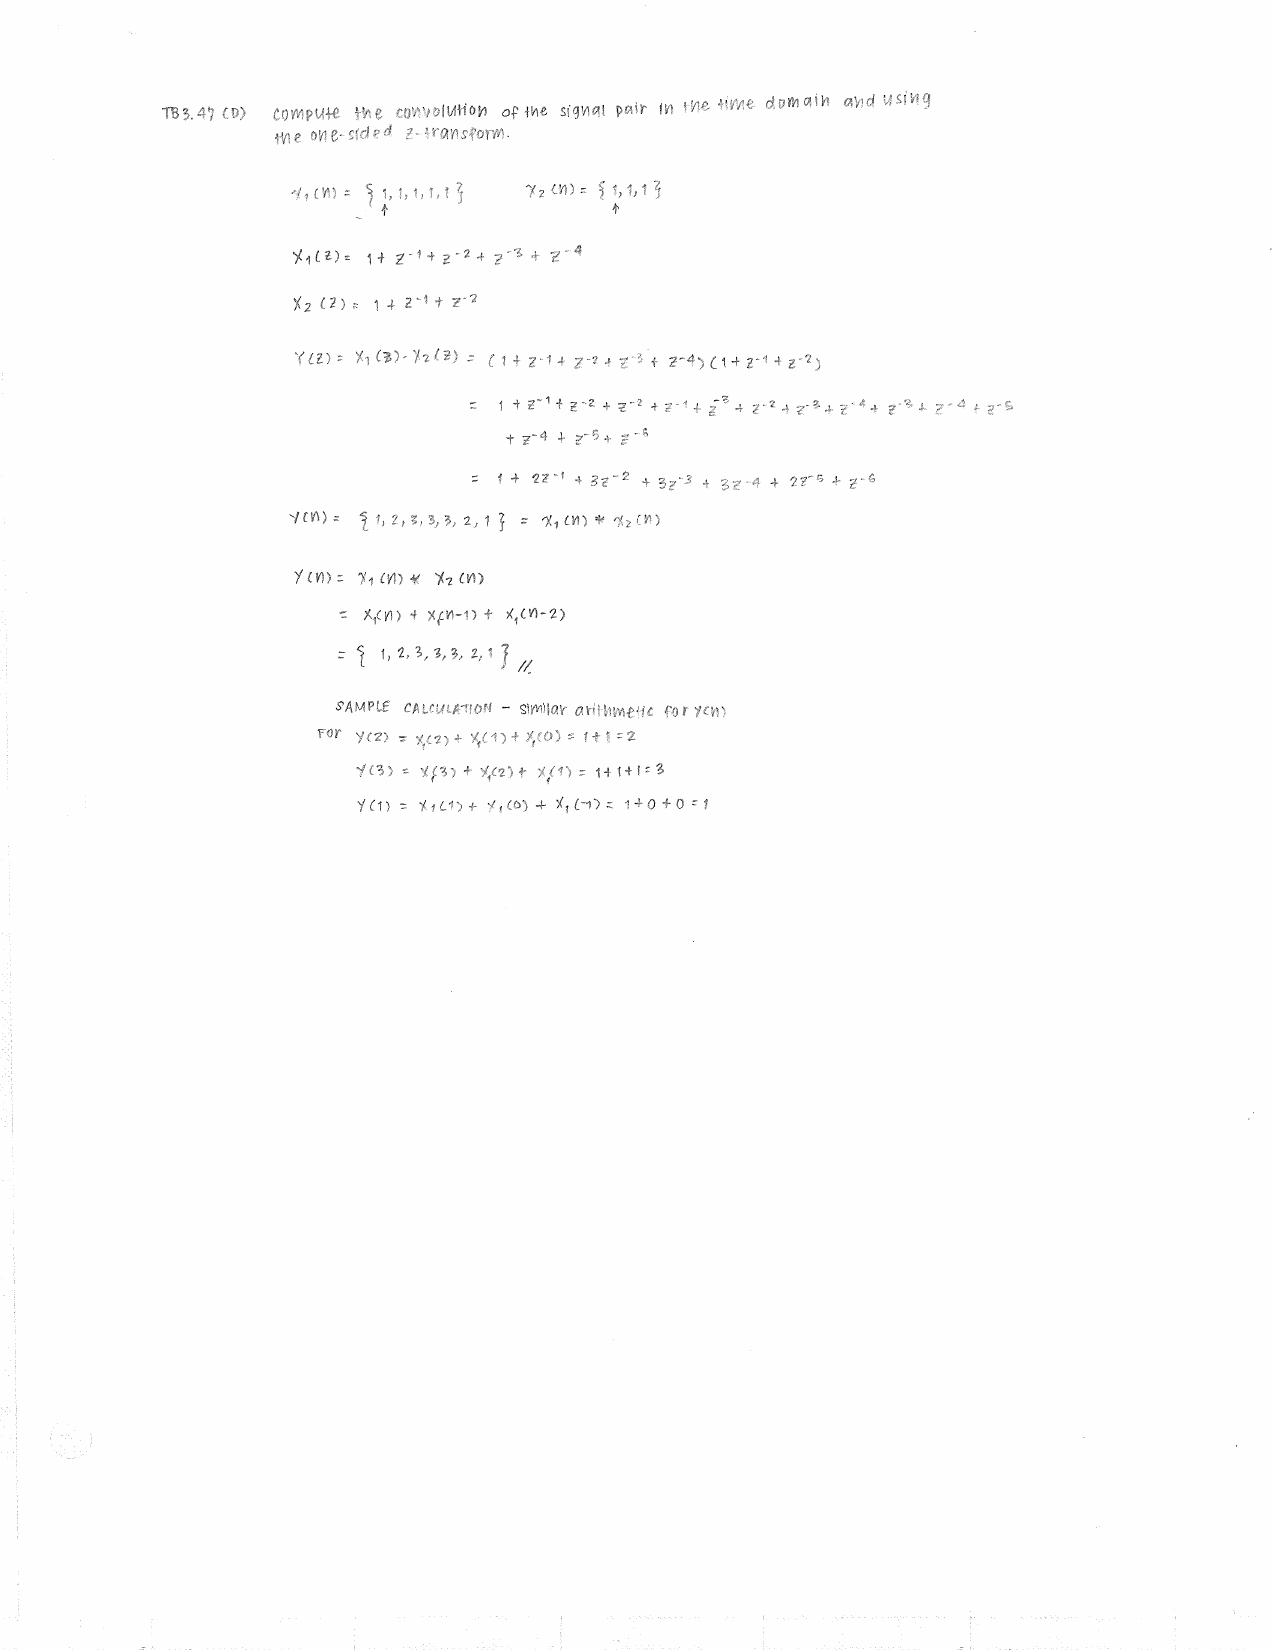 TB 3.47 (D) compute the convolution of the signal pair in the time domain and using
the one-sided z-transform.
x₁(n) = { 1, 1, 1, 1, 1 } x₂(n) = { 1, 1, 1 }
↑ ↑
X₁(z) = 1 + z⁻¹ + z⁻² + z⁻³ + z⁻⁴
X₂(z) = 1 + z⁻¹ + z⁻²
Y(z) = X₁(z)·X₂(z) = (1 + z⁻¹ + z⁻² + z⁻³ + z⁻⁴)(1 + z⁻¹ + z⁻²)
= 1 + z⁻¹ + z⁻² + z⁻² + z⁻¹ + z⁻³ + z⁻² + z⁻³ + z⁻⁴ + z⁻³ + z⁻⁴ + z⁻⁵
+ z⁻⁴ + z⁻⁵ + z⁻⁶
= 1 + 2z⁻¹ + 3z⁻² + 3z⁻³ + 3z⁻⁴ + 2z⁻⁵ + z⁻⁶
y(n) = { 1, 2, 3, 3, 3, 2, 1 } = x₁(n) * x₂(n)
y(n) = x₁(n) * x₂(n)
= x₁(n) + x₁(n-1) + x₁(n-2)
= { 1, 2, 3, 3, 3, 2, 1 } //
SAMPLE CALCULATION - similar arithmetic for y(n)
For y(2) = x₁(2) + x₁(1) + x₁(0) = 1+1 = 2
y(3) = x₁(3) + x₁(2) + x₁(1) = 1+1+1 = 3
y(1) = x₁(1) + x₁(0) + x₁(-1) = 1+0+0 = 1